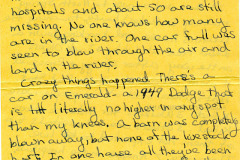 hospitals and about 50 are still
missing. No one knows how many
are in the river. One car full was
seen to blow through the air and
land in the river.
Crazy things happened. There's a
car on Emerald - a 1949 Dodge that
is literally no higher in any spot
than my knees. A barn was completely
blown away, but none of the livestock
hurt. In one house all they've been